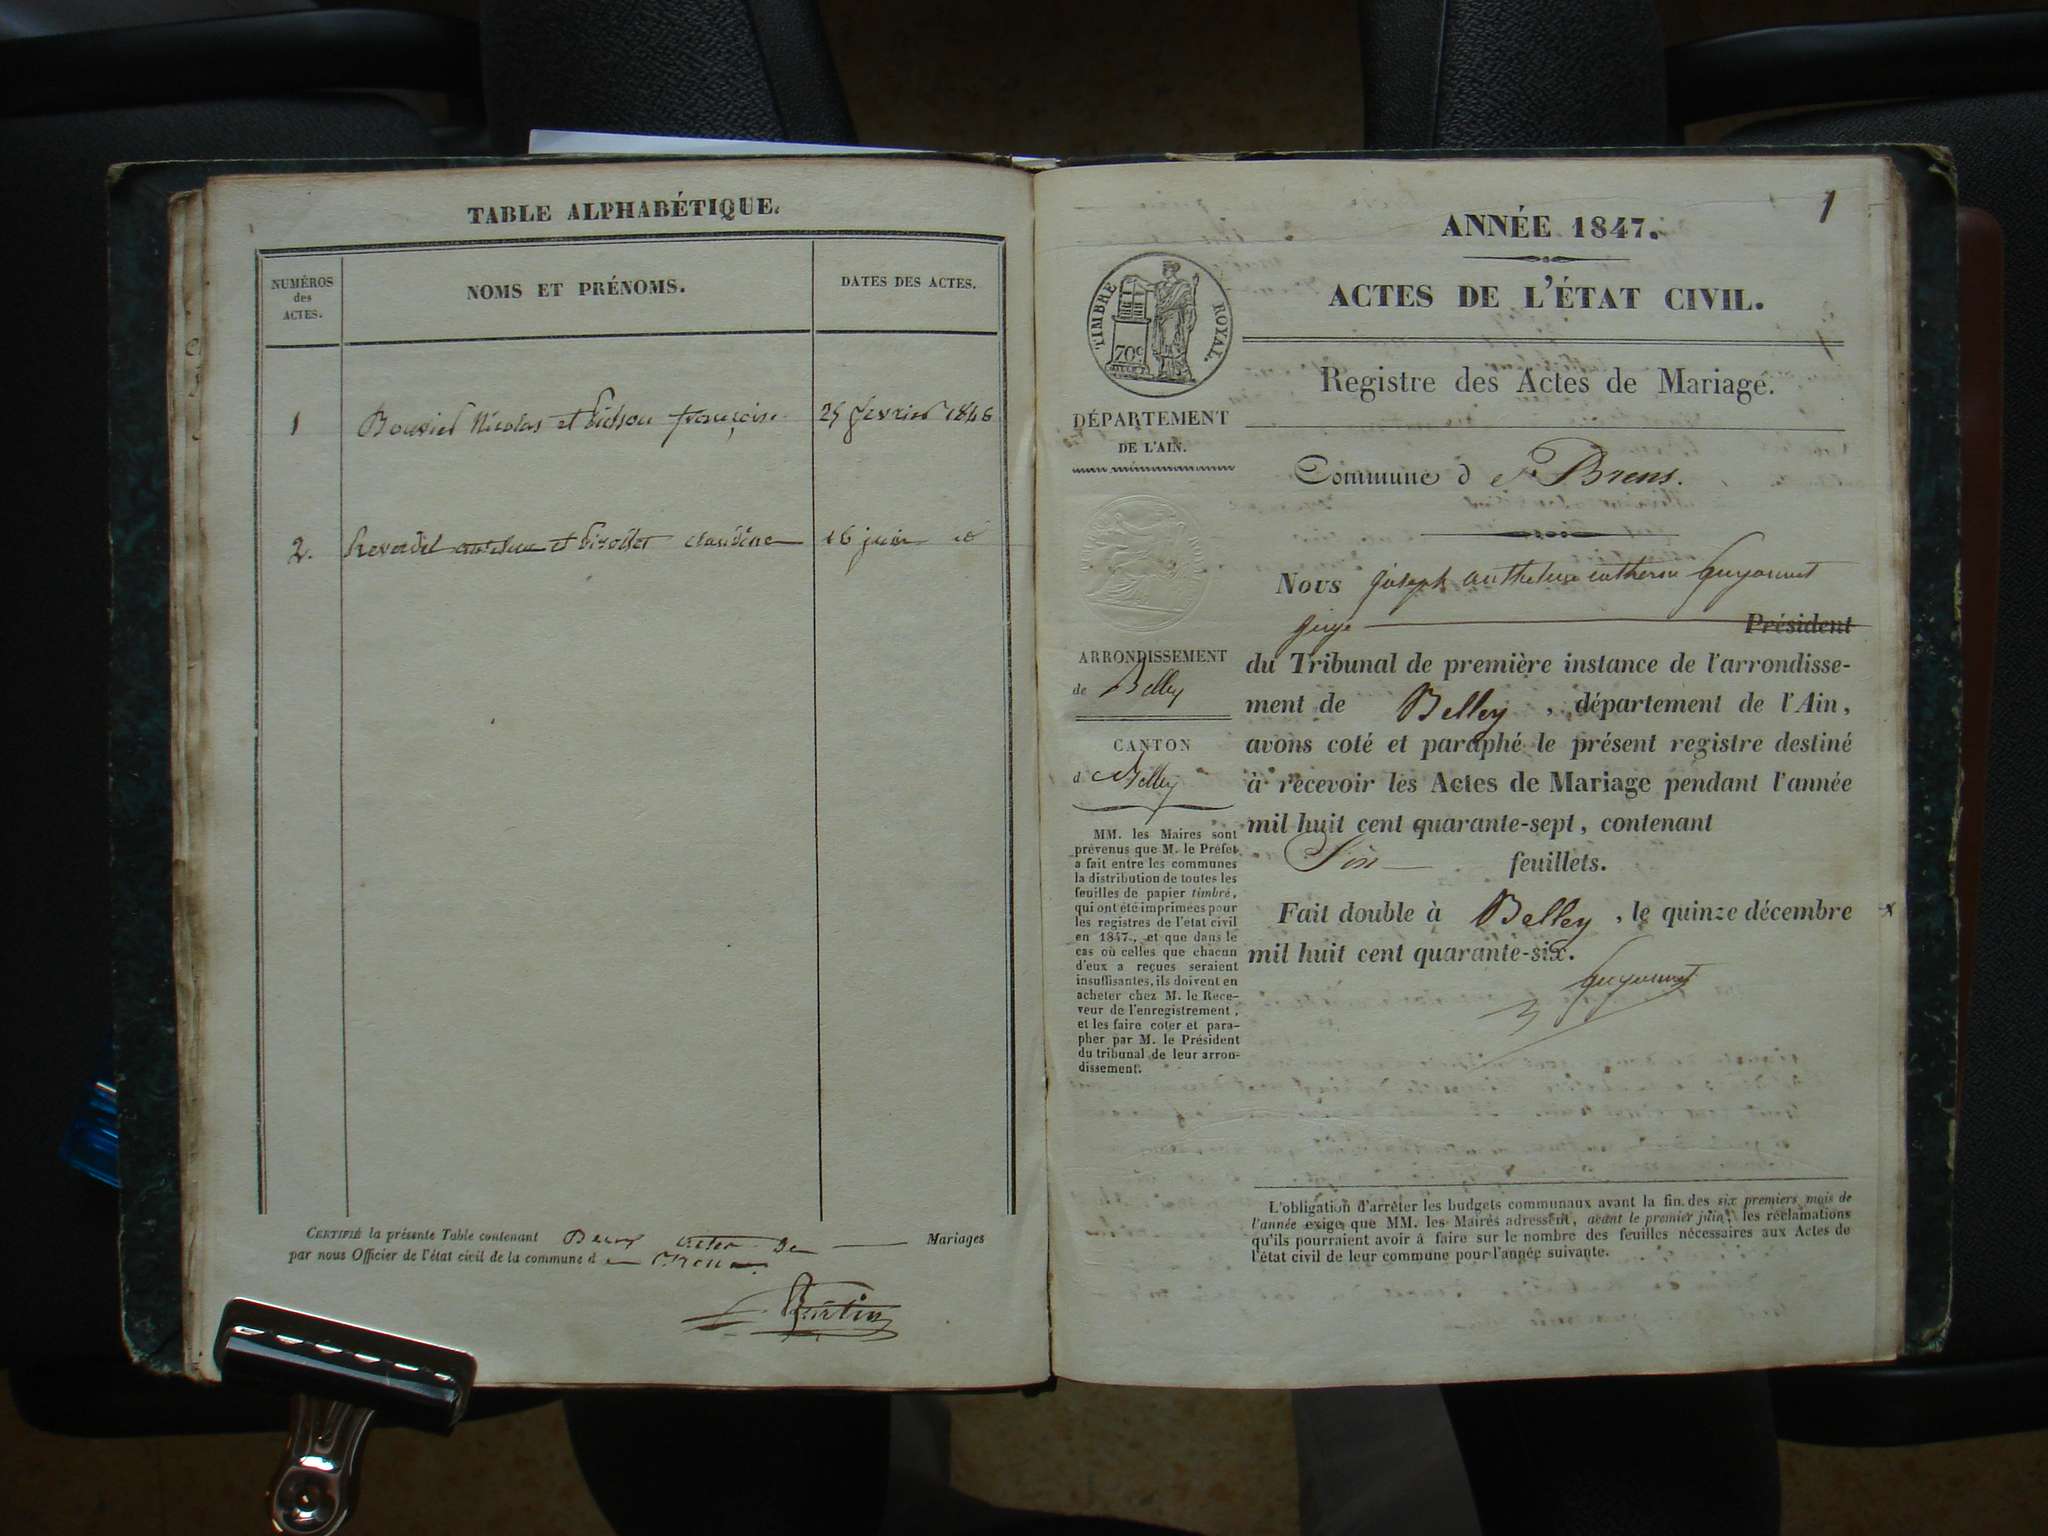 TABLE ALPHABÉTIQUE.
NUMÉROS
des
ACTES.
NOMS ET PRÉNOMS.
DATES DES ACTES.
1 Bouvier Nicolas et françoise 25 fevrier 1846
2. et claudine 16 juin id
CERTIFIÉ la présente Table contenant Deux actes de Mariages
par nous Officier de l'état civil de la commune d
Martin
1
ANNÉE 1847.
ACTES DE L'ÉTAT CIVIL.
TIMBRE ROYAL.
70c
Registre des Actes de Mariage.
DÉPARTEMENT
DE L'AIN.
Commune de Brens.
Nous joseph anthelme Guyonnet
juge Président
du Tribunal de première instance de l'arrondisse-
ment de Belley, département de l'Ain,
avons coté et paraphé le présent registre destiné
à recevoir les Actes de Mariage pendant l'année
mil huit cent quarante-sept, contenant
Six feuillets.
Fait double à Belley, le quinze décembre
mil huit cent quarante-six.
Guyonnet
ARRONDISSEMENT
de Belley
CANTON
de Belley
MM. les Maires sont
prévenus que M. le Préfet
a fait entre les communes
la distribution de toutes les
feuilles de papier timbré,
qui ont été imprimées pour
les registres de l'état civil
en 1847, et que dans le
cas où celles que chacun
d'eux a reçues seraient
insuffisantes, ils doivent en
acheter chez M. le Rece-
veur de l'enregistrement,
et les faire coter et para-
pher par M. le Président
du tribunal de leur arron-
dissement.
L'obligation d'arrêter les budgets communaux avant la fin des six premiers mois de
l'année exige que MM. les Maires adressent, avant le premier juin, les réclamations
qu'ils pourraient avoir à faire sur le nombre des feuilles nécessaires aux Actes de
l'état civil de leur commune pour l'année suivante.